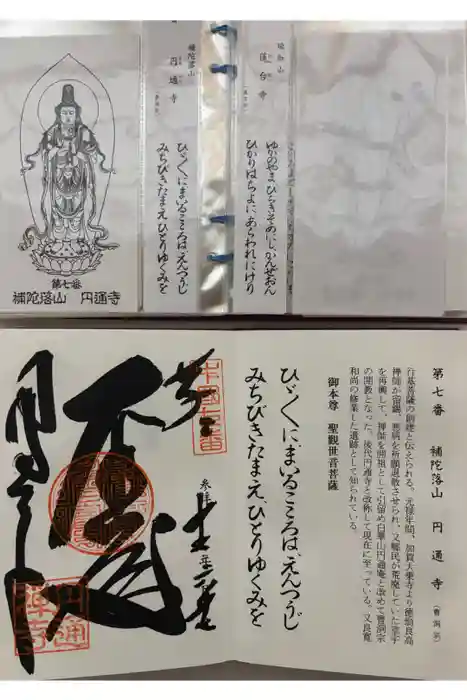 第七番
補陀落山 円通寺
補陀落山
円通寺
(曹洞宗)
ひゞくにまいるこころは、えんつうじ
みちびきたまえ、ひとりゆくみを
瑜伽山
蓮台寺
ゆがのやま、ひらきそめにし、かんぜおん
ひかりはちよに、あらわれにけり
第七番 補陀落山 円通寺(曹洞宗)
行基菩薩の創建と伝えられる。元禄年間、加賀大乗寺より徳翁良高
禅師が留錫、悪病を祈願退散させられ、又郷民が荒廃していた堂宇
を再興して、禅師を開祖として引留め白華山円通庵と改めて曹洞宗
の開教となった。後代円通寺と改称して現在に至っている。又良寛
和尚の修業した遺跡として知られている。
御本尊 聖観世音菩薩
ひゞくにまいるこころは、えんつうじ
みちびきたまえ、ひとりゆくみを
中国七番
円通
禅寺